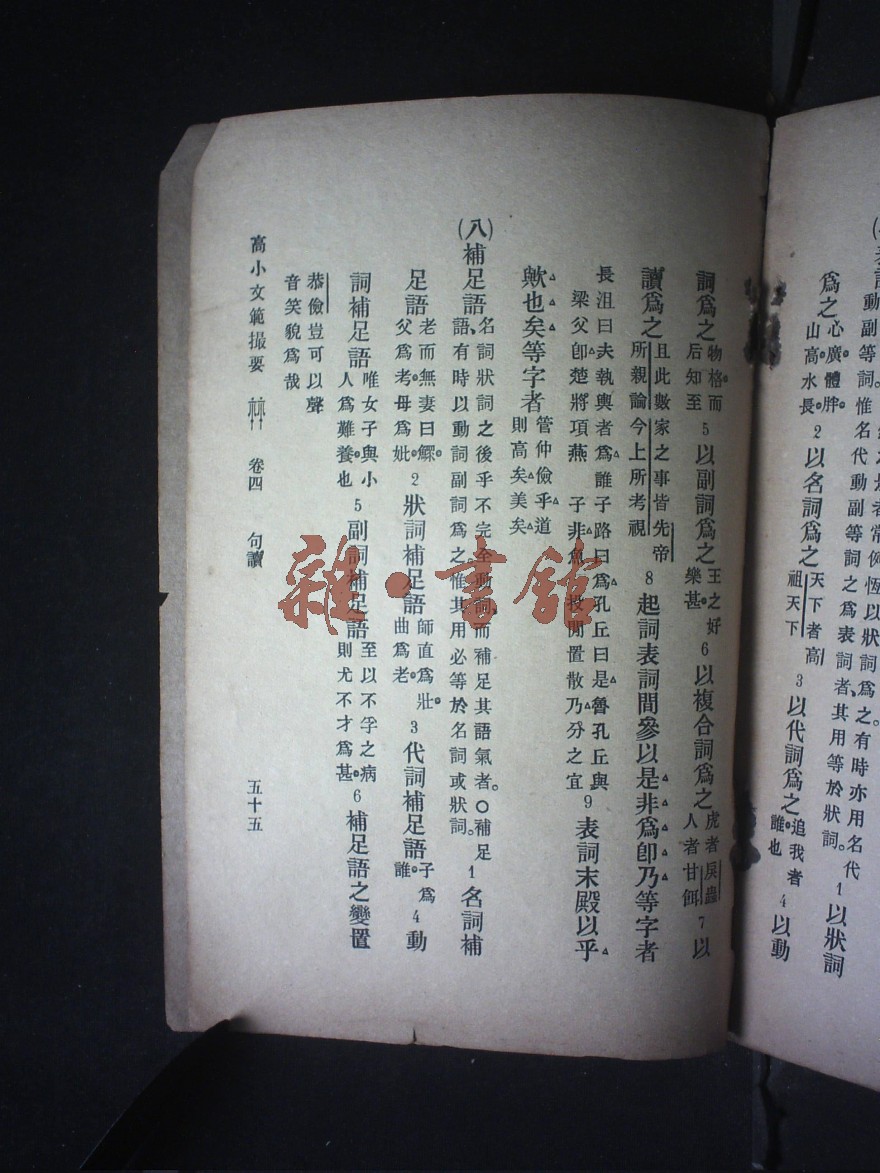 表詞動副等詞。惟名代動副等詞之爲表詞者、其用等於狀詞。 1 以狀詞
爲之心廣。體胖。山高。水長。 2 以名詞爲之天下者高祖天下 3 以代詞爲之追我者誰也 4 以動
詞爲之物格。而后知至 5 以副詞爲之王之好樂甚。 6 以複合詞爲之虎者戾蟲人者甘餌 7 以
讀爲之且此數家之事皆先帝所親論今上所考視 8 起詞表詞間參以是非爲卽乃等字者
長沮曰夫執輿者爲誰子路曰爲孔丘曰是魯孔丘與
梁父卽楚將項燕 子非魚 投閒置散乃分之宜 9 表詞末殿以乎
歟也矣等字者管仲儉乎道則高矣美矣
(八)補足語、名詞狀詞之後乎不完全動詞、而補足其語氣者。○補足語、有時以動詞副詞爲之惟其用必等於名詞或狀詞。 1 名詞補
足語老而無妻曰鰥。父爲考。母爲妣。 2 狀詞補足語師直爲壯。曲爲老。 3 代詞補足語子爲誰。 4 動
詞補足語唯女子與小人爲難養。也 5 副詞補足語至以不孚之病則尤不才爲甚。 6 補足語之變置
恭儉豈可以聲音笑貌爲哉
高小文範撮要 卷四 句讀 五十五
雜·書館